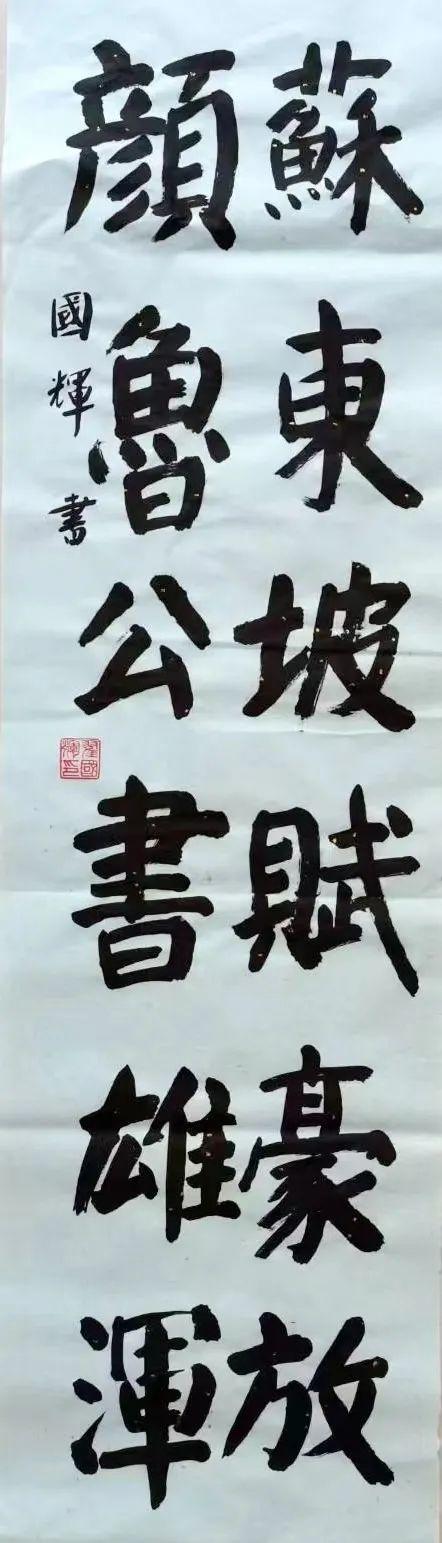 蘇東坡賦豪放
顏魯公書雄渾
國輝書